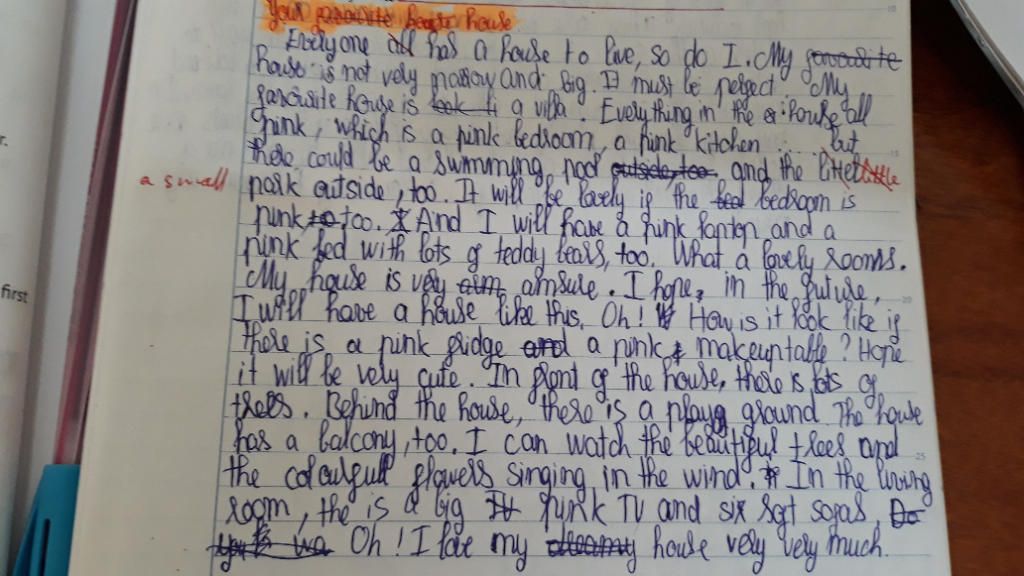 Your favourite house
Everyone all has a house to live, so do I. My favourite
house is not very narrow and big. It must be perfect. My
favourite house is a villa. Everything in the house all
pink, which is a pink bedroom, a pink kitchen .... but
there could be a swimming pool outside, too and the little
a small park outside, too. It will be lovely if the bedroom is
pink too. And I will have a pink lapton and a
pink bed with lots of teddy bears, too. What a lovely rooms.
My house is very amsule. I hope, in the future,
I will have a house like this. Oh! How is it look like if
there is a pink fridge and a pink makeup table? Hope
it will be very cute. In front of the house, there is lots of
trees. Behind the house, there is a play ground. The house
has a balcony, too. I can watch the beautiful trees and
the colourfull flowers singing in the wind. In the living
room, the is a big pink TV and six soft sofas.
Oh! I love my dreamy house very very much.
r.
first